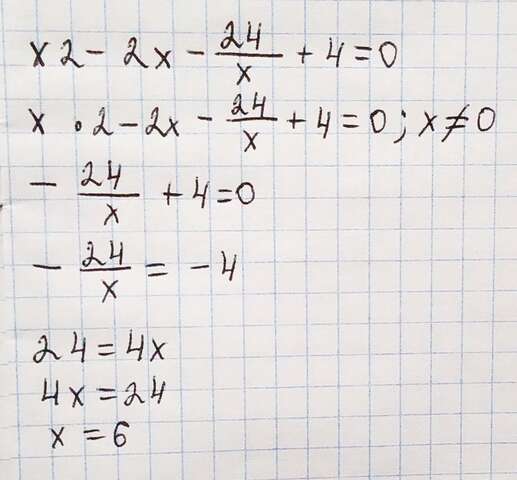 x2 - 2x - 24/x + 4 = 0
x · 2 - 2x - 24/x + 4 = 0; x ≠ 0
- 24/x + 4 = 0
- 24/x = - 4
24 = 4x
4x = 24
x = 6